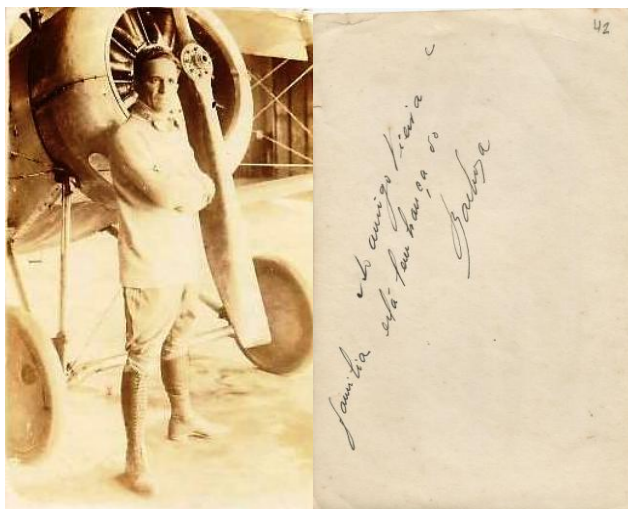 42
Ao amigo Vieira e
familia esta lembrança do
Barbosa